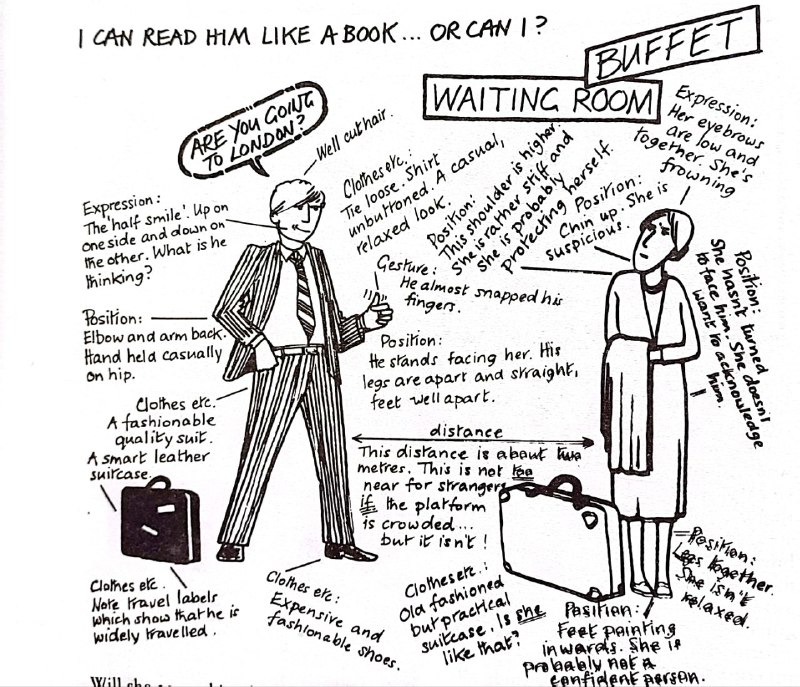 I CAN READ HIM LIKE A BOOK... OR CAN I?
BUFFET
WAITING ROOM
ARE YOU GOING
TO LONDON?
Well cut hair.
Expression:
The 'half smile'. Up on
one side and down on
the other. What is he
thinking?
Clothes etc.:
Tie loose. Shirt
unbuttoned. A casual,
relaxed look.
Position:
This shoulder is higher.
She is rather stiff and
She is probably
protecting herself.
Position:
Chin up. She is
suspicious.
Expression:
Her eyebrows
are low and
together. She's
frowning
Position:
She hasn't turned
to face him. She doesn't
want to acknowledge
him.
Gesture:
He almost snapped his
fingers.
Position:
Elbow and arm back.
Hand held casually
on hip.
Position:
He stands facing her. His
legs are apart and straight,
feet well apart.
Clothes etc.
A fashionable
quality suit.
A smart leather
suitcase.
distance
This distance is about two
metres. This is not too
near for strangers
if the platform
is crowded...
but it isn't!
Clothes etc.
Note travel labels
which show that he is
widely travelled.
Clothes etc:
Expensive and
fashionable shoes.
Clothes etc.:
Old fashioned
but practical
suitcase. Is she
like that?
Position:
Feet pointing
inwards. She is
probably not a
confident person.
Position:
Legs together.
She isn't
relaxed.